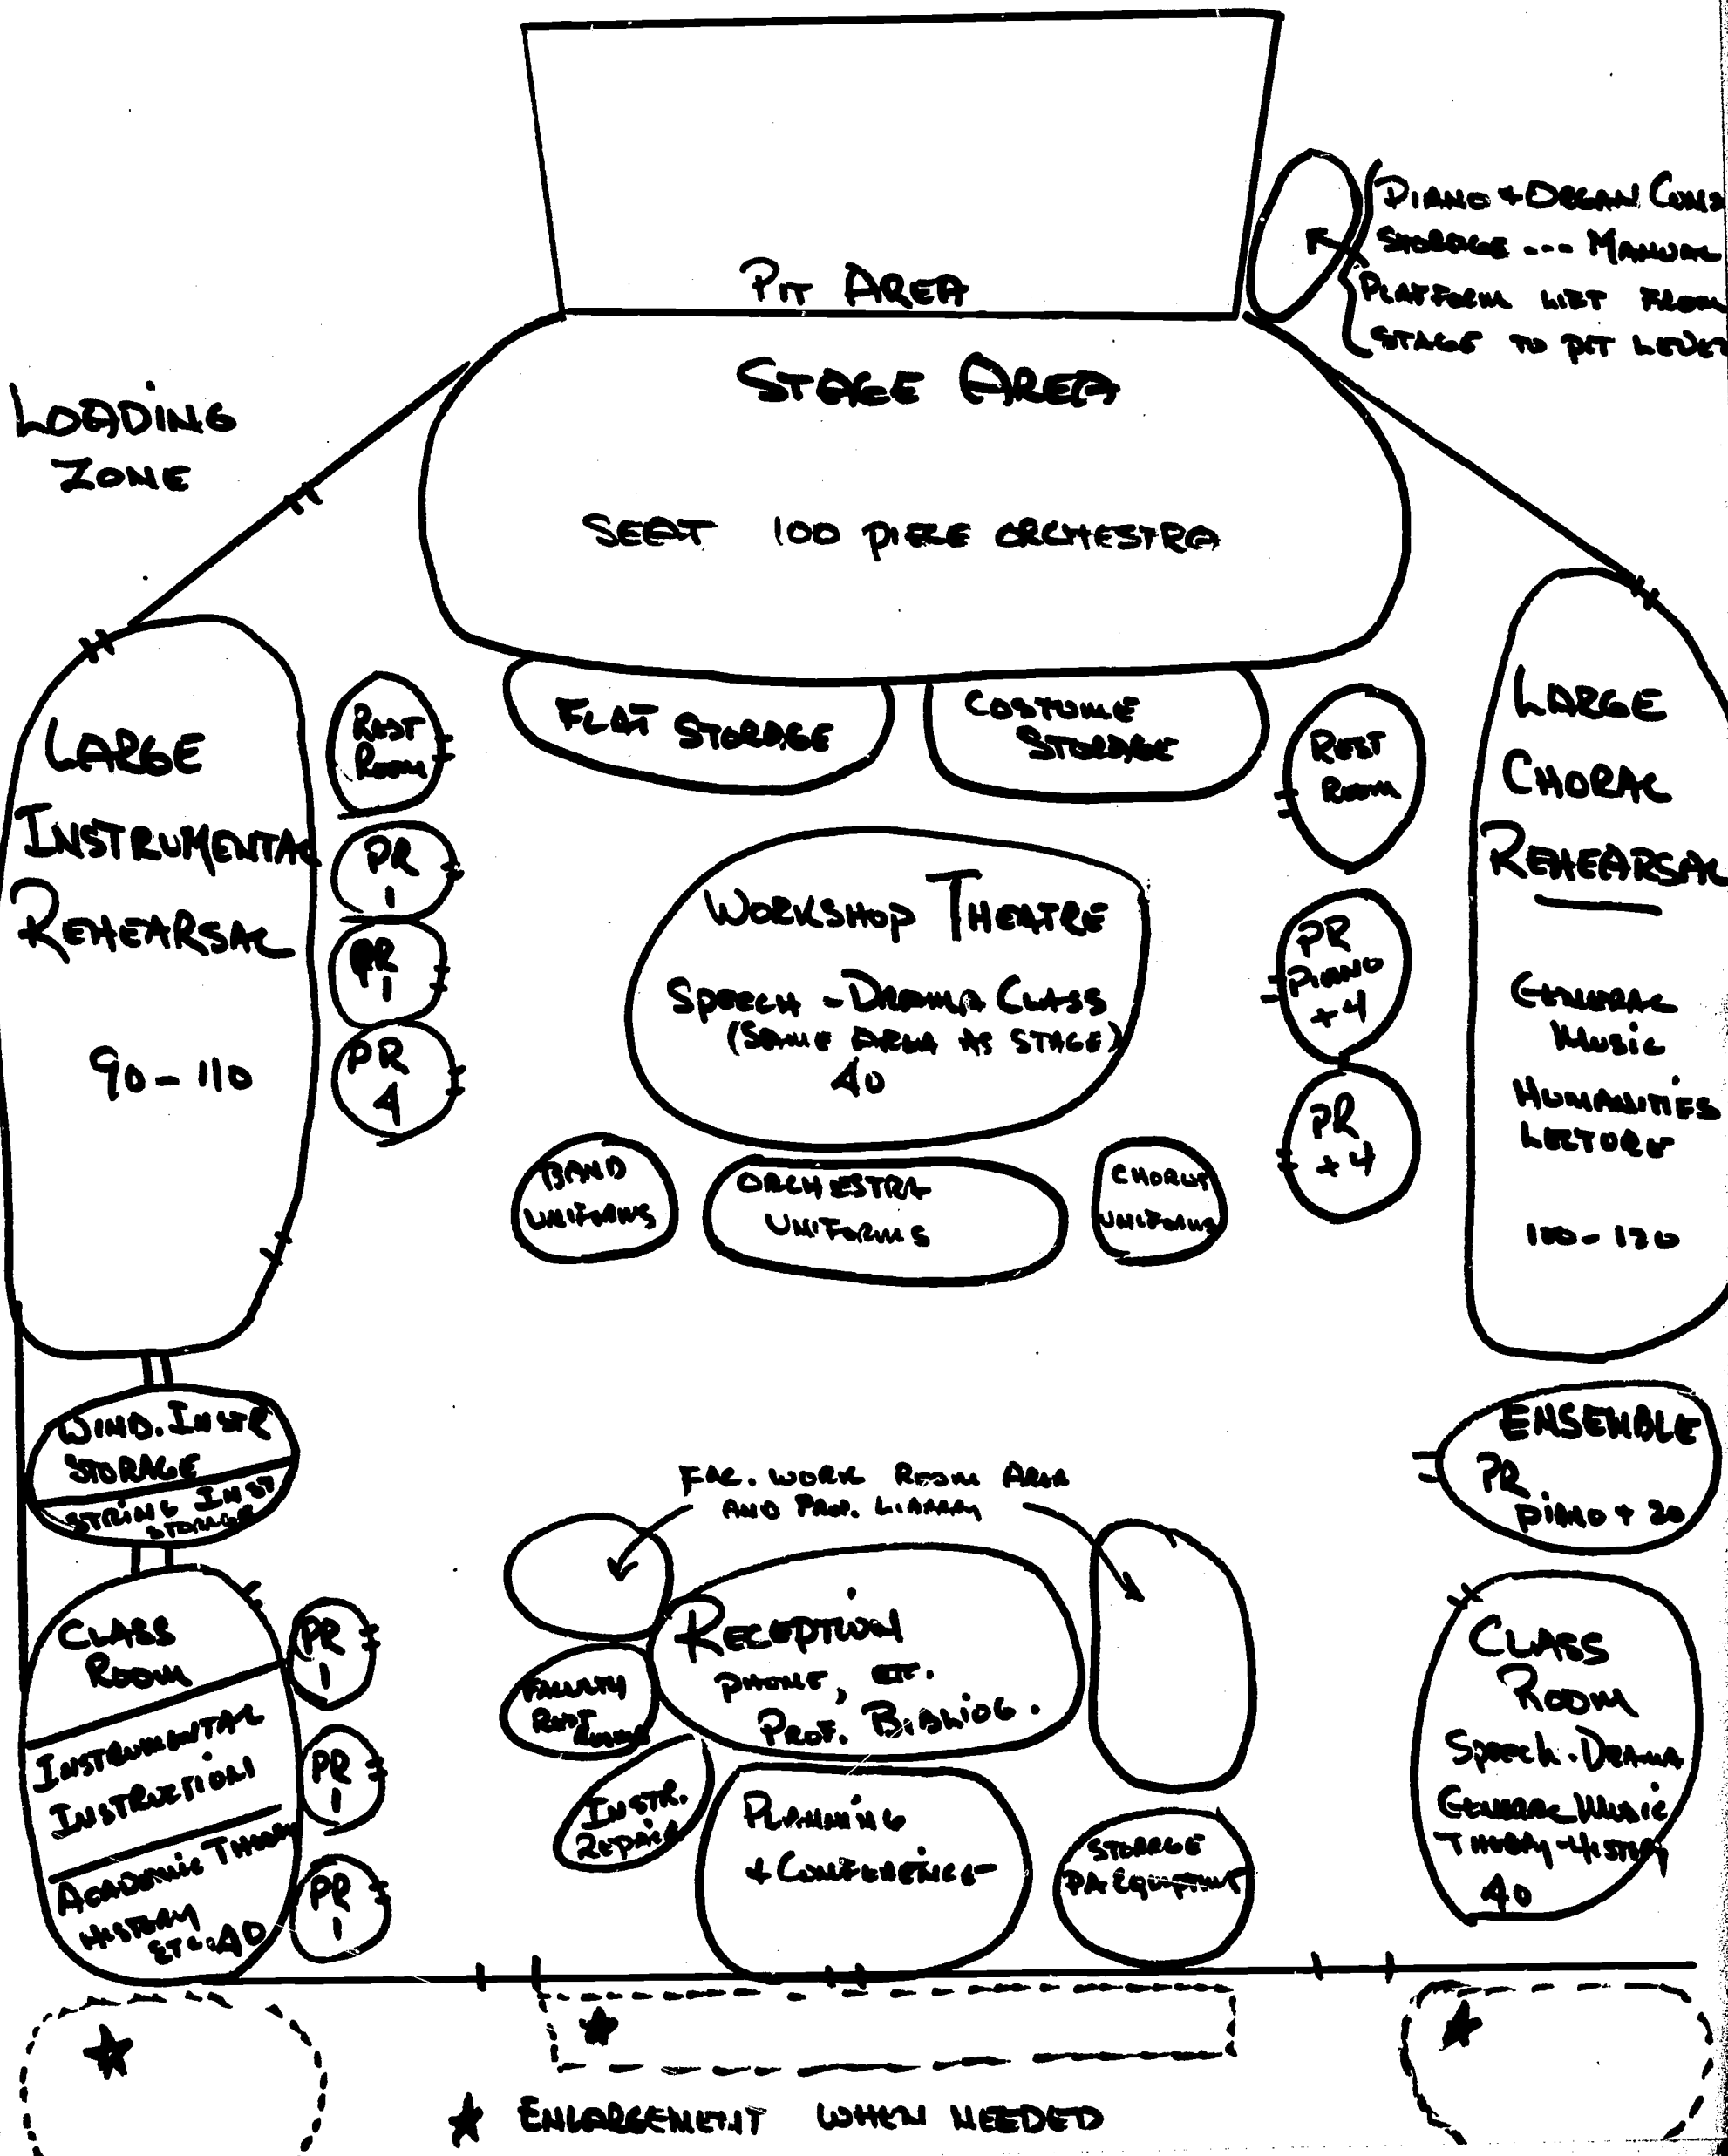 PIANO + ORGAN CONS
STORAGE --- MANUAL
PLATFORM LIFT FROM
STAGE TO PIT LEVEL
PIT AREA
STAGE AREA
LOADING
ZONE
SEAT 100 PIECE ORCHESTRA
LARGE
INSTRUMENTAL
REHEARSAL
90 - 110
REST
ROOM
PR
1
PR
1
PR
4
FLAT STORAGE
COSTUME
STORAGE
REST
ROOM
LARGE
CHORAL
REHEARSAL
GENERAL
MUSIC
HUMANITIES
LECTURE
100 - 120
WORKSHOP THEATRE
SPEECH - DRAMA CLASS
(SAME AREA AS STAGE)
40
PR
PIANO
+4
PR
+4
BAND
UNIFORMS
ORCHESTRA
UNIFORMS
CHORUS
UNIFORMS
WIND. INSTR
STORAGE
STRING INST
STORAGE
ENSEMBLE
PR
PIANO + 20
FAC. WORK ROOM AREA
AND PROF. LIBRARY
CLASS
ROOM
INSTRUMENTAL
INSTRUCTION
ACADEMIC THEORY
HISTORY
ETC. 40
PR
1
PR
1
PR
1
RECEPTION
PHONE, ETC.
PROF. BIBLIOG.
FACULTY
REST
ROOMS
INSTR.
REPAIR
PLANNING
+ CONFERENCE
STORAGE
PA EQUIPMENT
CLASS
ROOM
SPEECH - DRAMA
GENERAL MUSIC
THEORY - HISTORY
40
★ ENLARGEMENT WHEN NEEDED